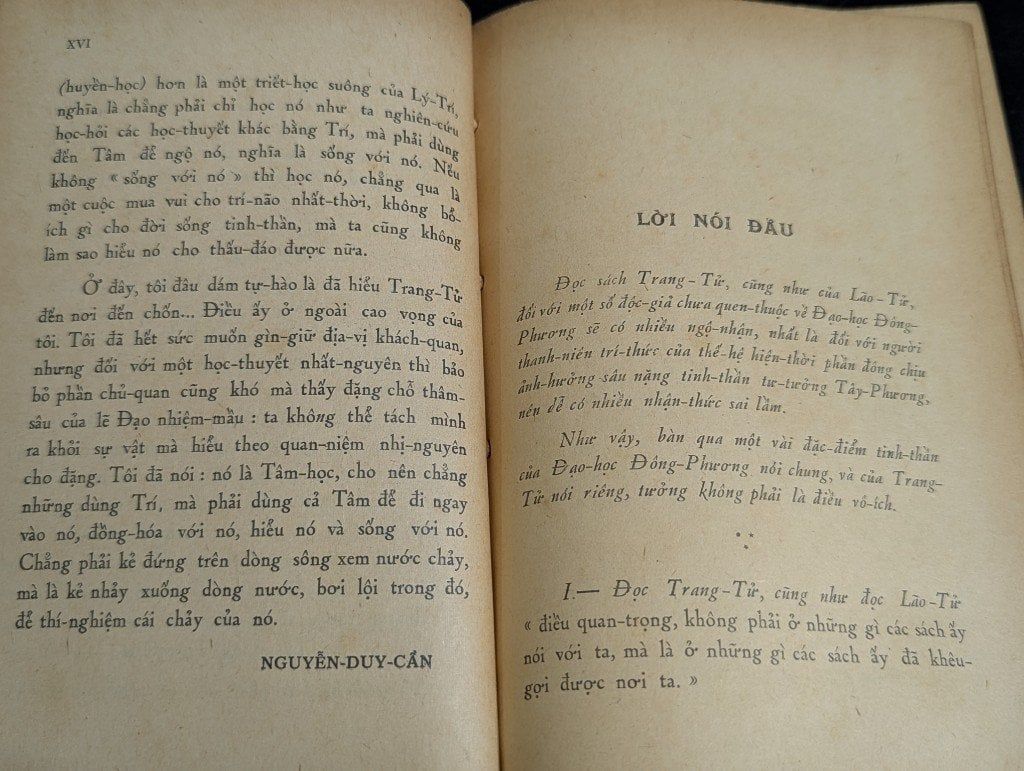 XVI
(huyền-học) hơn là một triết-học suông của Lý-Trí,
nghĩa là chẳng phải chỉ học nó như ta nghiên-cứu
học-hỏi các học-thuyết khác bằng Trí, mà phải dùng
đến Tâm để ngộ nó, nghĩa là sống với nó. Nếu
không « sống với nó » thì học nó, chẳng qua là
một cuộc mua vui cho trí-não nhất-thời, không bổ-
ích gì cho đời sống tinh-thần, mà ta cũng không
làm sao hiểu nó cho thấu-đáo được nữa.
Ở đây, tôi đâu dám tự-hào là đã hiểu Trang-Tử
đến nơi đến chốn... Điều ấy ở ngoài cao vọng của
tôi. Tôi đã hết sức muốn gìn-giữ địa-vị khách-quan,
nhưng đối với một học-thuyết nhất-nguyên thì bảo
bỏ phần chủ-quan cũng khó mà thấy đặng chỗ thâm-
sâu của lẽ Đạo nhiệm-mầu : ta không thể tách mình
ra khỏi sự vật mà hiểu theo quan-niệm nhị-nguyên
cho đặng. Tôi đã nói : nó là Tâm-học, cho nên chẳng
những dùng Trí, mà phải dùng cả Tâm để đi ngay
vào nó, đồng-hóa với nó, hiểu nó và sống với nó.
Chẳng phải kẻ đứng trên dòng sông xem nước chảy,
mà là kẻ nhảy xuống dòng nước, bơi lội trong đó,
để thí-nghiệm cái chảy của nó.
NGUYỄN-DUY-CẦN
LỜI NÓI ĐẦU
Đọc sách Trang-Tử, cũng như của Lão-Tử,
đối với một số độc-giả chưa quen-thuộc về Đạo-học Đông-
Phương sẽ có nhiều ngộ-nhận, nhất là đối với người
thanh-niên trí-thức của thế-hệ hiện-thời phần đông chịu
ảnh-hưởng sâu nặng tinh-thần tư-tưởng Tây-Phương,
nên dễ có nhiều nhận-thức sai lầm.
Như vậy, bàn qua một vài đặc-điểm tinh-thần
của Đạo-học Đông-Phương nói chung, và của Trang-
Tử nói riêng, tưởng không phải là điều vô-ích.
I.— Đọc Trang-Tử, cũng như đọc Lão-Tử
« điều quan-trọng, không phải ở những gì các sách ấy
nói với ta, mà là ở những gì các sách ấy đã khêu-
gợi được nơi ta. »